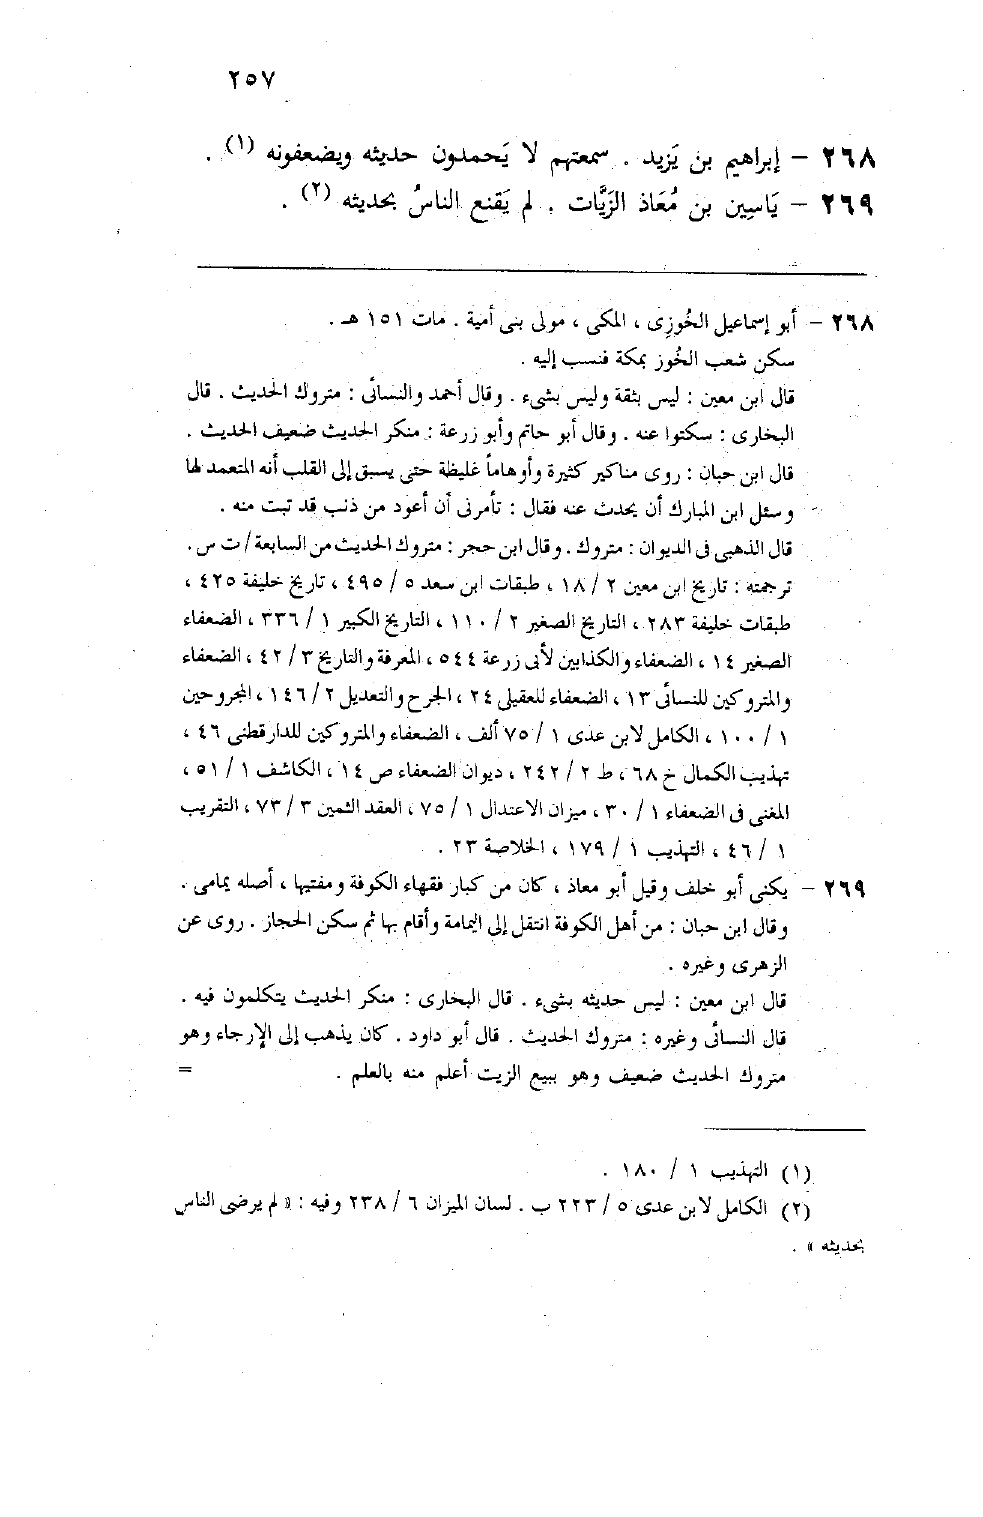 ٢٥٧
٢٦٨ – إبراهيم بن يَزيد . سمعتهم لا يَحمدون حديثه ويضعفونه (١) .
٢٦٩ – يَاسِين بن مُعَاذ الزَيَّات . لم يَقنع الناسُ بحديثه (٢) .
٢٦٨ – أبو إسماعيل الخُوزِى ، المكى ، مولى بنى أمية . مات ١٥١ هـ .
سكن شعب الخُوز بمكة فنسب إليه .
قال ابن معين : ليس بثقة وليس بشىء . وقال أحمد والنسائى : متروك الحديث . قال
البخارى : سكتوا عنه . وقال أبو حاتم وأبو زرعة : منكر الحديث ضعيف الحديث .
قال ابن حبان : روى مناكير كثيرة وأوهاماً غليظة حتى يسبق إلى القلب أنه المتعمد لها
وسئل ابن المبارك أن يحدث عنه فقال : تأمرنى أن أعود من ذنب قد تبت منه .
قال الذهبى فى الديوان : متروك . وقال ابن حجر : متروك الحديث من السابعة / ت س .
ترجمته : تاريخ ابن معين ٢ / ١٨ ، طبقات ابن سعد ٥ / ٤٩٥ ، تاريخ خليفة ٤٢٥ ،
طبقات خليفة ٢٨٣ ، التاريخ الصغير ٢ / ١١٠ ، التاريخ الكبير ١ / ٣٣٦ ، الضعفاء
الصغير ١٤ ، الضعفاء والكذابين لأبى زرعة ٥٤٤ ، المعرفة والتاريخ ٣ / ٤٢ ، الضعفاء
والمتروكين للنسائى ١٣ ، الضعفاء للعقيلى ٢٤ ، الجرح والتعديل ٢ / ١٤٦ ، المجروحين
١ / ١٠٠ ، الكامل لابن عدى ١ / ٧٥ ألف ، الضعفاء والمتروكين للدارقطنى ٤٦ ،
تهذيب الكمال خ ٦٨ ، ط ٢ / ٢٤٢ ، ديوان الضعفاء ص ١٤ ، الكاشف ١ / ٥١ ،
المغنى فى الضعفاء ١ / ٣٠ ، ميزان الاعتدال ١ / ٧٥ ، العقد الثمين ٣ / ٧٣ ، التقريب
١ / ٤٦ ، التهذيب ١ / ١٧٩ ، الخلاصة ٢٣ .
٢٦٩ – يكنى أبو خلف وقيل أبو معاذ ، كان من كبار فقهاء الكوفة ومفتيها ، أصله يمامى .
وقال ابن حبان : من أهل الكوفة انتقل إلى اليمامة وأقام بها ثم سكن الحجاز . روى عن
الزهرى وغيره .
قال ابن معين : ليس حديثه بشىء . قال البخارى : منكر الحديث يتكلمون فيه .
قال النسائى وغيره : متروك الحديث . قال أبو داود . كان يذهب إلى الإرجاء وهو
متروك الحديث ضعيف وهو ببيع الزيت أعلم منه بالعلم . =
(١) التهذيب ١ / ١٨٠ .
(٢) الكامل لابن عدى ٥ / ٢٢٣ ب . لسان الميزان ٦ / ٢٣٨ وفيه : « لم يرضى الناس
بحديثه » .